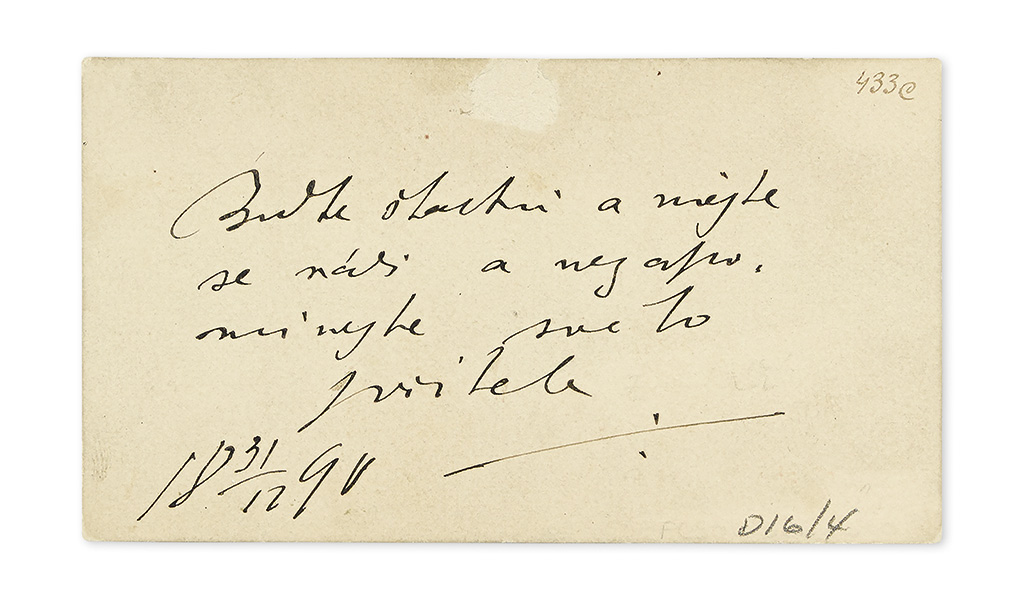 433c
Buďte šťastni a mějte
se rádi a nezapo.
minejte sveto
přitele
18 31/12 90
D16/4